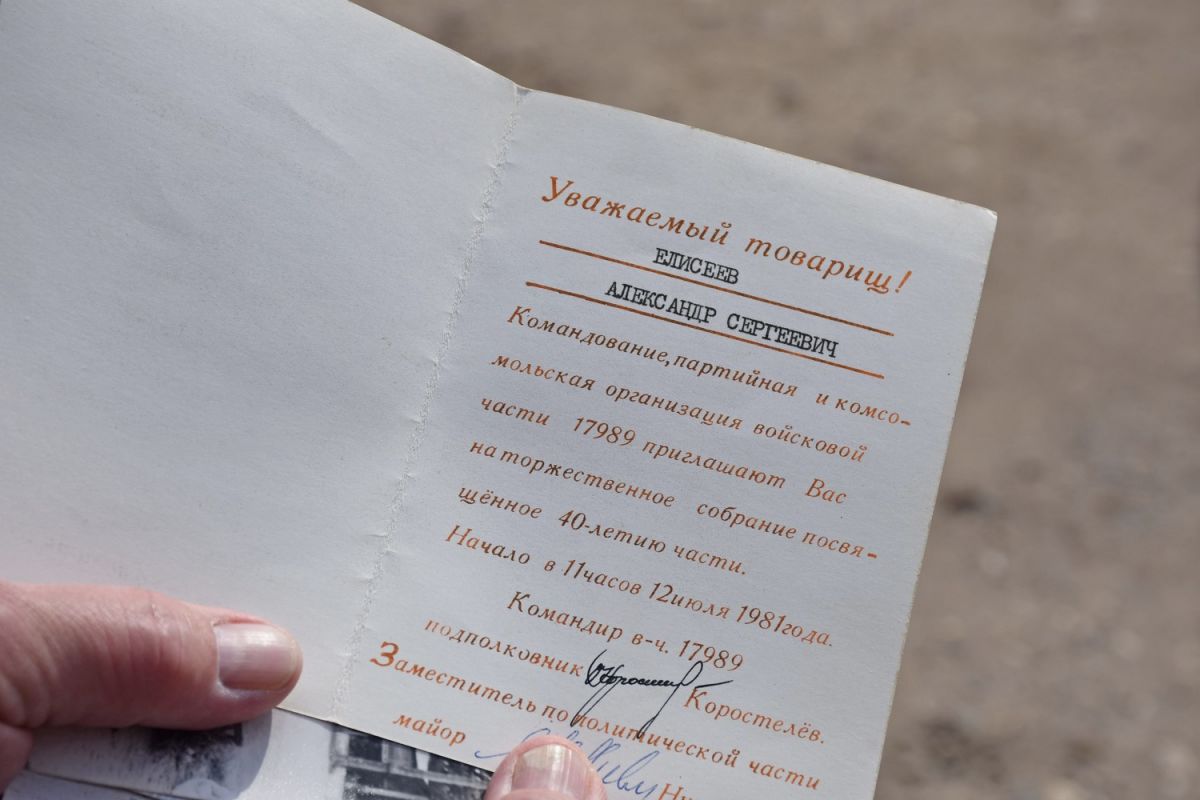 Уважаемый товарищ!
ЕЛИСЕЕВ
АЛЕКСАНДР СЕРГЕЕВИЧ
Командование, партийная и комсо-
мольская организация войсковой
части 17989 приглашают Вас
на торжественное собрание посвя-
щённое 40-летию части.
Начало в 11 часов 12 июля 1981 года.
Командир в-ч. 17989
подполковник Коростелёв.
Заместитель по политической части
майор